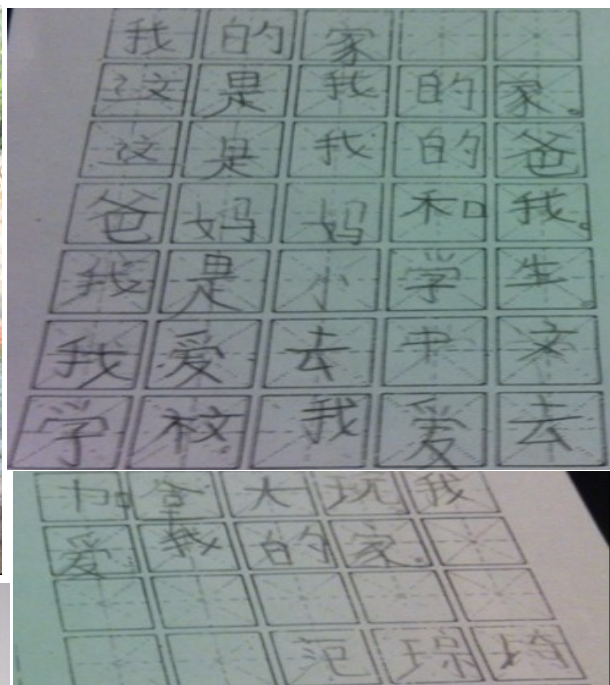 我的家
这是我的家。
这是我的爸
爸妈妈和我。
我是小学生。
我爱去中文
学校。我爱去
加拿大玩我
爱我的家。
范琮埼